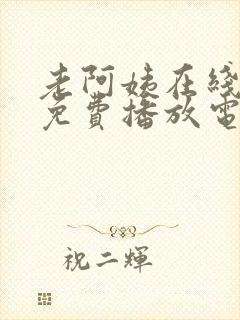 老阿姨在线
免费播放电
祝二輝